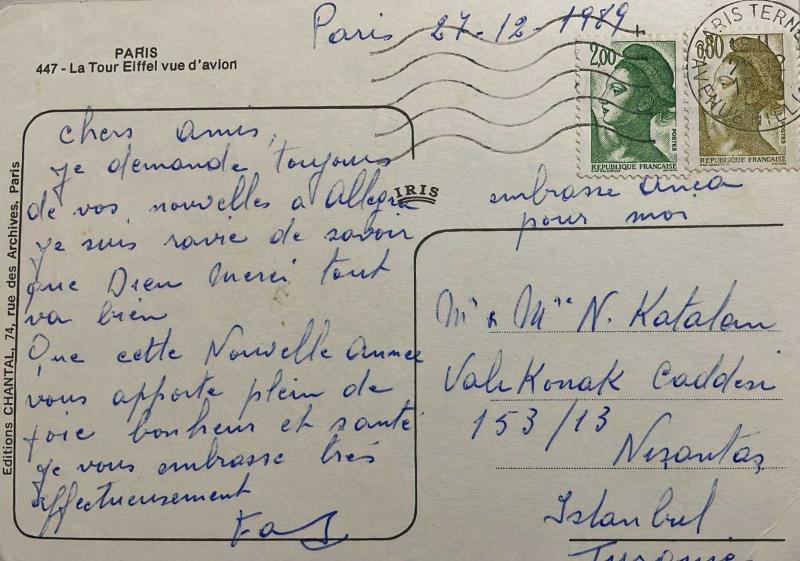 Paris 27-12-1989
PARIS
447 - La Tour Eiffel vue d'avion
2,00
POSTES
REPUBLIQUE FRANÇAISE
0,80
POSTES
REPUBLIQUE FRANÇAISE
PARIS TERNES
AVENUE
chers amis,
je demande toujours
de vos nouvelles a Allegra
je suis ravie de savoir
que Dieu merci tout
va bien
Que cette Nouvelle année
vous apporte plein de
joie bonheur et santé
je vous embrasse très
affectueusement
IRIS
embrasse
pour moi
Mr & Mme N. Katalan
Vali Konak Caddesi
153/13
Nizantaş
Istanbul
Turquie
Editions CHANTAL, 74, rue des Archives, Paris